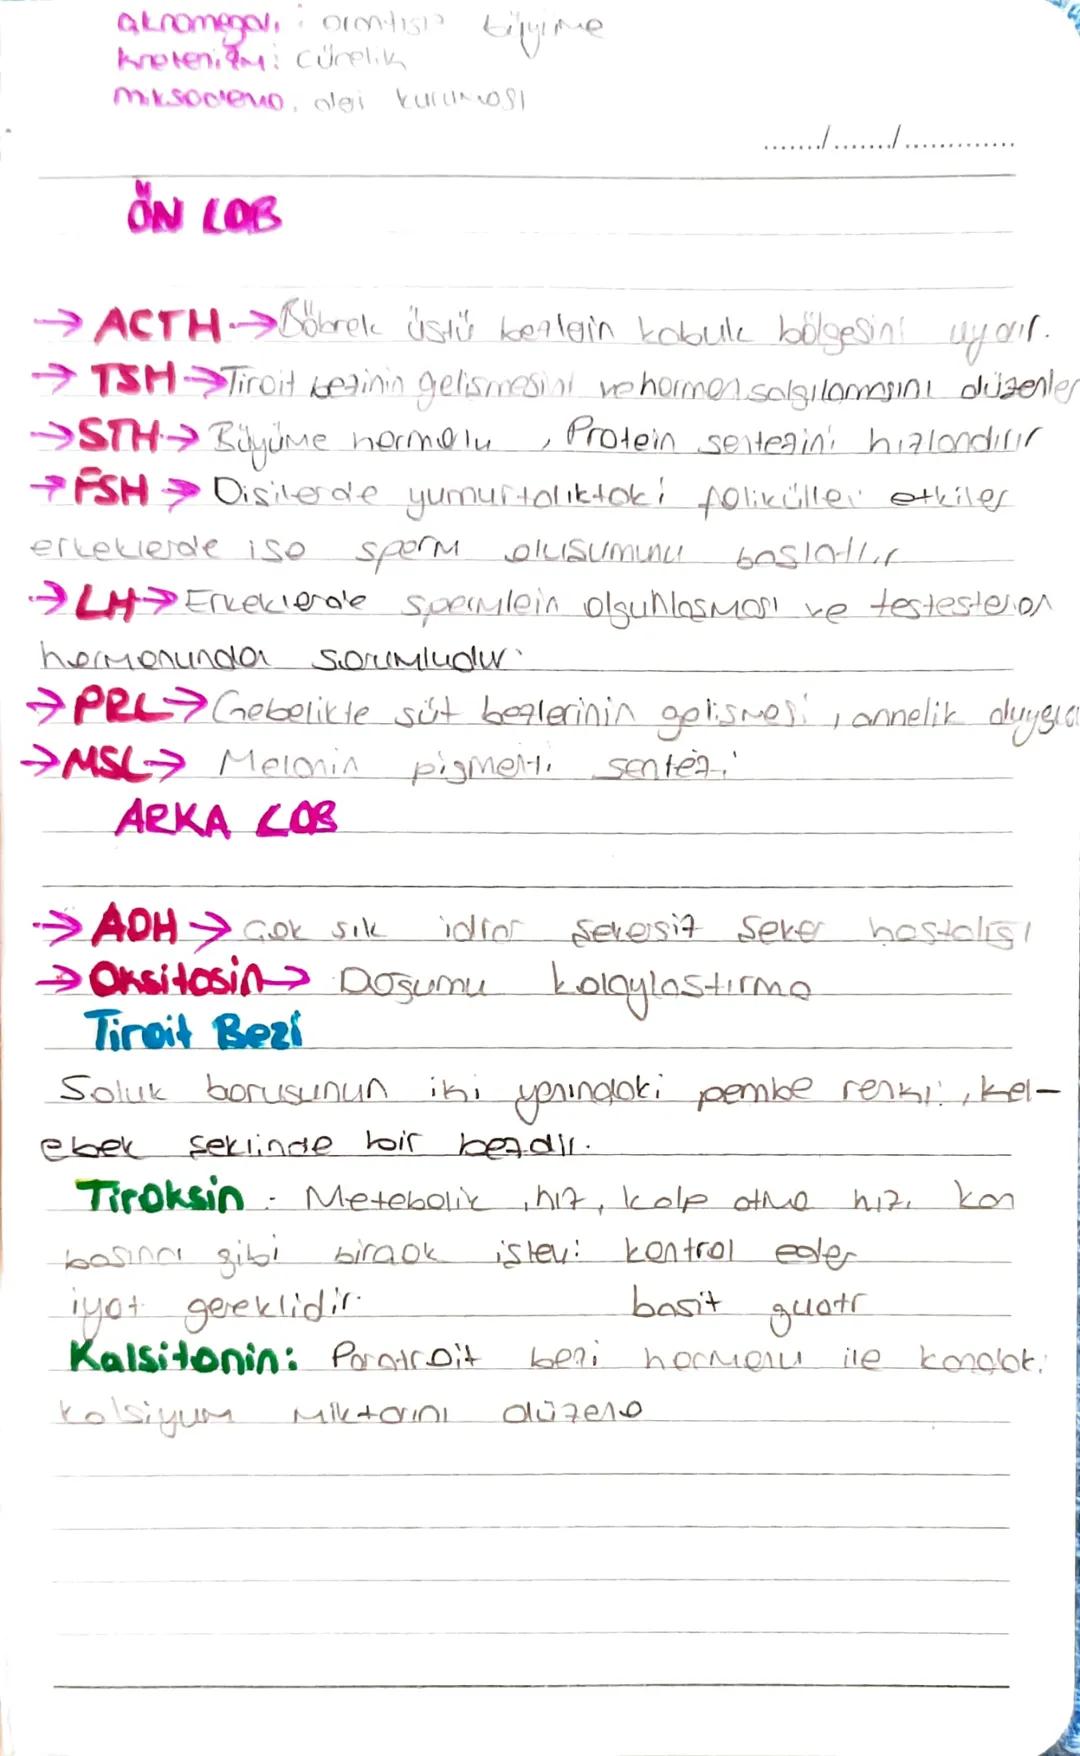 akromegali : orantısız büyüme
kretenizm : cücelik
miksodema, deri kuruması
......../......../.............
ÖN LOB
→ ACTH → Böbrek üstü bezlerin kabuk bölgesini uyarır.
→ TSH → Tiroit bezinin gelişmesini ve hormon salgılamasını düzenler
→ STH → Büyüme hormonu, Protein sentezini hızlandırır
→ FSH → Dişilerde yumurtalıktaki foliküller etkiler
erkeklerde ise sperm oluşumunu başlatır
→ LH → Erkeklerde spermlein olgunlaşması ve testesteron
hormonundan sorumludur.
→ PRL → Gebelikte süt bezlerinin gelişmesi, annelik duygusu
→ MSL → Melanin pigmenti sentezi
ARKA LOB
→ ADH → Çok sık idrar şekersiz şeker hastalığı
→ Oksitosin → Doğumu kolaylaştırma
Tiroit Bezi
Soluk borusunun iki yanındaki pembe renkli, kel-
ebek şeklinde bir bezdir.
Tiroksin : Metebolik hız, kalp atma hızı kan
basıncı gibi birçok işlevi kontrol eder
iyot gereklidir. basit guatr
Kalsitonin: Paratroit bezi hormonu ile kandaki
kalsiyum miktarını düzenle